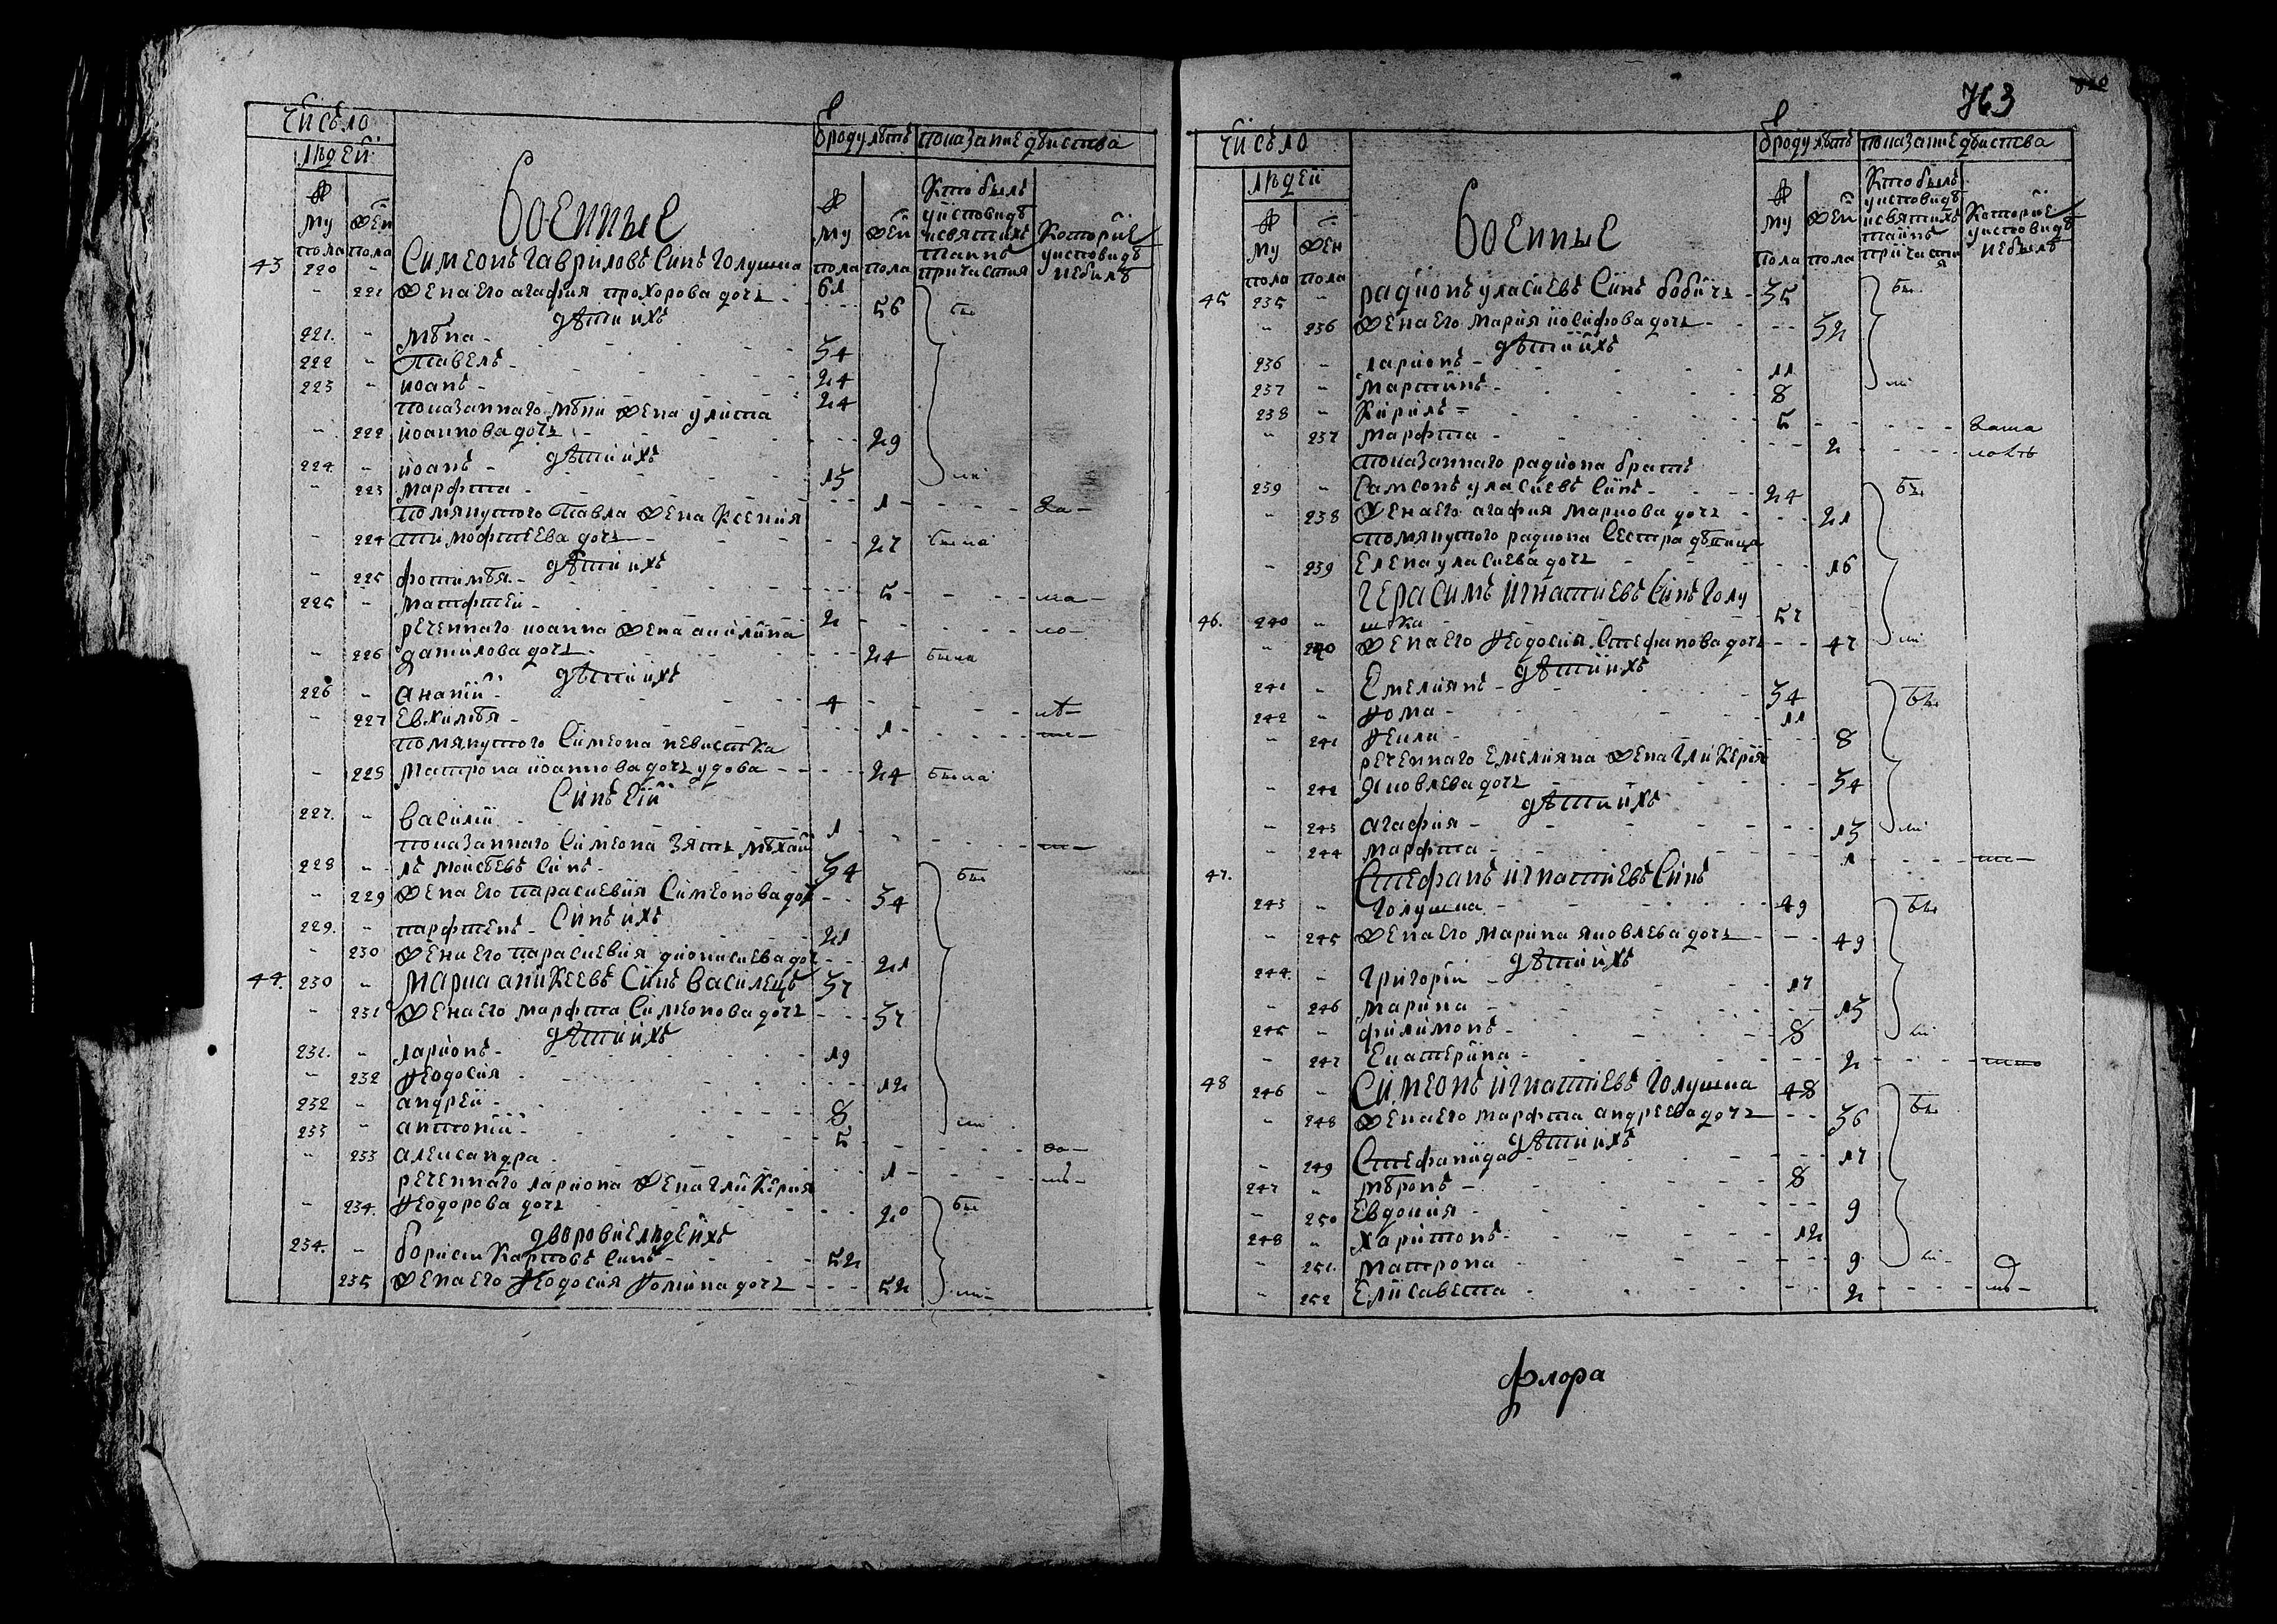 Число
людей
му пола
жен пола
Военные
в роду летъ
му пола
жен пола
показание действа
Кто былъ у исповиди и святихъ таинъ причастия
Которие у исповиди небилѣ
43 220 " Симеонъ Гавриловъ Синъ Голушка 61
" 221 Жена его агафия прохорова дочь - 56 бы
дѣти ихъ
221. " мѣна - 34
222 " Павелъ - 24
223 " иоанъ - 24
показанного мѣни жена улита
" 222 иоаннова дочь - 29
дѣти ихъ
224 " иоанъ - 13 ли
" 223 марфта - 1 - за -
помянутого Павла жена Ксения
" 224 тимофтеева дочь - 27 была
дѣти ихъ
" 225 фотимѣя - 5 - ма -
225 " матфтей - 2 - ло -
реченного иоанна жена акилина
" 226 данилова дочь - 24 была
дѣти ихъ
226 " Ананий - 4 - лѣ -
" 227 Евхимѣя - 1 - т -
помянутого Симеона невистка
" 228 матрона иоаннова дочь удова - 24 была
Синъ Ей
227. " василий - 1 - т -
показанного Симеона зять мѣхай
228 " лъ моисѣевъ Синъ - 34 бы
" 229 Жена его параскевия Симеонова доч - 34
Синъ ихъ
229. " парфтенъ - 21
" 230 Жена его параскевия дионисиева доч - 21
44. 230 " Марка аникеевъ Синъ Василецъ 37
" 231 Жена его марфта Симеонова дочь - 37
дѣти ихъ
231. " ларионъ - 19
" 232 Ѳеодосия - 12
232 " андрей - 8
233 " антоний - 5 ли
" 233 александра - 1
реченного лариона жена гликерия
" 234. Ѳеодорова дочь - 20 бы
дворовие люде ихъ
234. " борисъ Карповъ Синъ - 52
235 Жена его Ѳеодосия Ѳомина дочь - 52 ли -
763
Число
людей
му пола
жен пола
Военные
в роду летъ
му пола
жен пола
показание действа
Кто былъ у исповиди и святихъ таинъ причастия
Которие у исповиди небилѣ
45 235 " радионъ уласиевъ Синъ бобичъ - 35 бы
" 236 Жена его Мария иосифова дочь - 32
дѣти ихъ
236 " ларионъ - 11
237 " мартинъ - 8 ли
238 " Кирилъ - 5
" 237 марфта - 2
показанного радиона братъ
239 " Самсонъ уласиевъ Синъ - 24 бы
" 238 Жена его агафия маркова дочь - 21
помянутого радиона Сестра дѣвица
" 239 Елена уласиева дочь - 16
Герасимъ игнатиевъ Синъ Голу
46. 240 " шка - 57
" 240 Жена его Ѳеодосия Стефанова дочь - 47 ли
дѣти ихъ
241 " Емелиянъ - 34 бы
242 " Ѳома - 11
" 241 Ѳекла - 8
реченного Емелияна жена Гликерия
" 242 Яковлева дочь - 34
дѣти ихъ
" 243 агафия - 13 ли
" 244 марфта - 1 - т -
47. Стефанъ игнатиевъ Синъ
243 " Голушка - 49 бы
" 245 Жена его Марина яковлева дочь - 49
дѣти ихъ
244. " Григорий - 17
" 246 Марина - 13
245 " филимонъ - 8 ли
" 247 Екатерина - 2
48 246 " Симеонъ игнатиевъ Голушка 48 бы
" 248 Жена его марфта андреева дочь - 36
дѣти ихъ
" 249 Стефанида - 17
247 " мѣронъ - 8
" 250 Евдокия - 9
248 " харитонъ - 12
" 251. матрона - 9 ли
" 252 Елисавета - 2
Флора